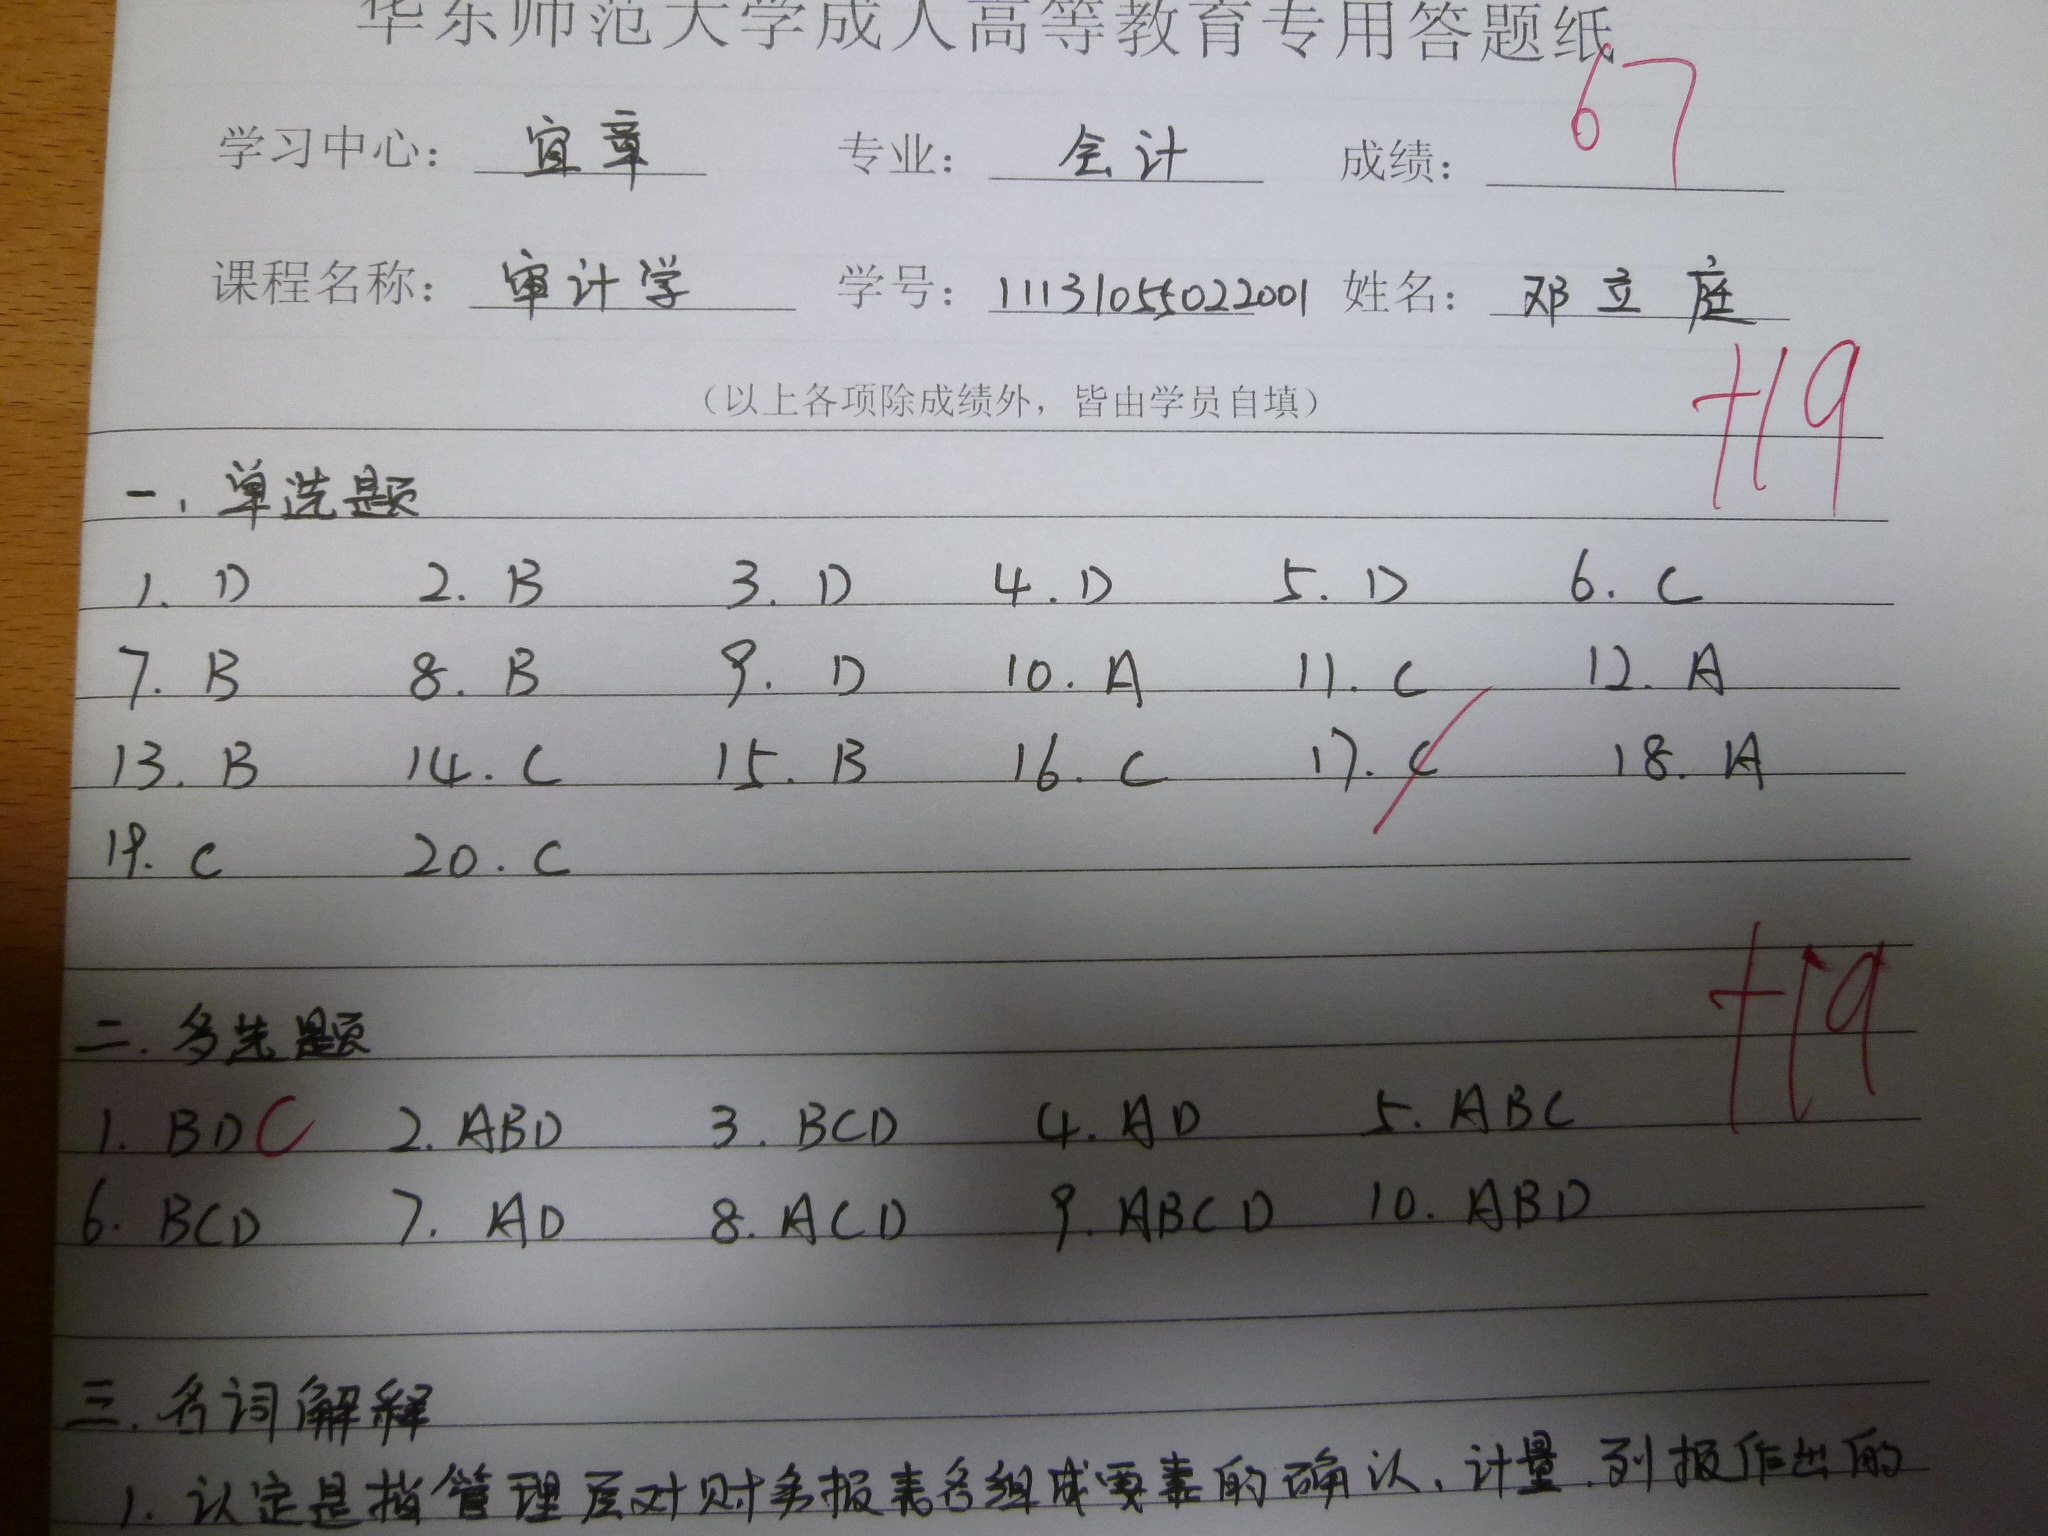 华东师范大学成人高等教育专用答题纸
学习中心： 宜章 专业： 会计 成绩： 67
课程名称： 审计学 学号： 11131055022001 姓名： 邓立庭
（以上各项除成绩外，皆由学员自填）
+19
一、单选题
1. D 2. B 3. D 4. D 5. D 6. C
7. B 8. B 9. D 10. A 11. C 12. A
13. B 14. C 15. B 16. C 17. C 18. A
19. C 20. C
+19
二. 多选题
1. BDC 2. ABD 3. BCD 4. AD 5. ABC
6. BCD 7. AD 8. ACD 9. ABCD 10. ABD
三. 名词解释
1. 认定是指管理层对财务报表各组成要素的确认、计量、列报作出的